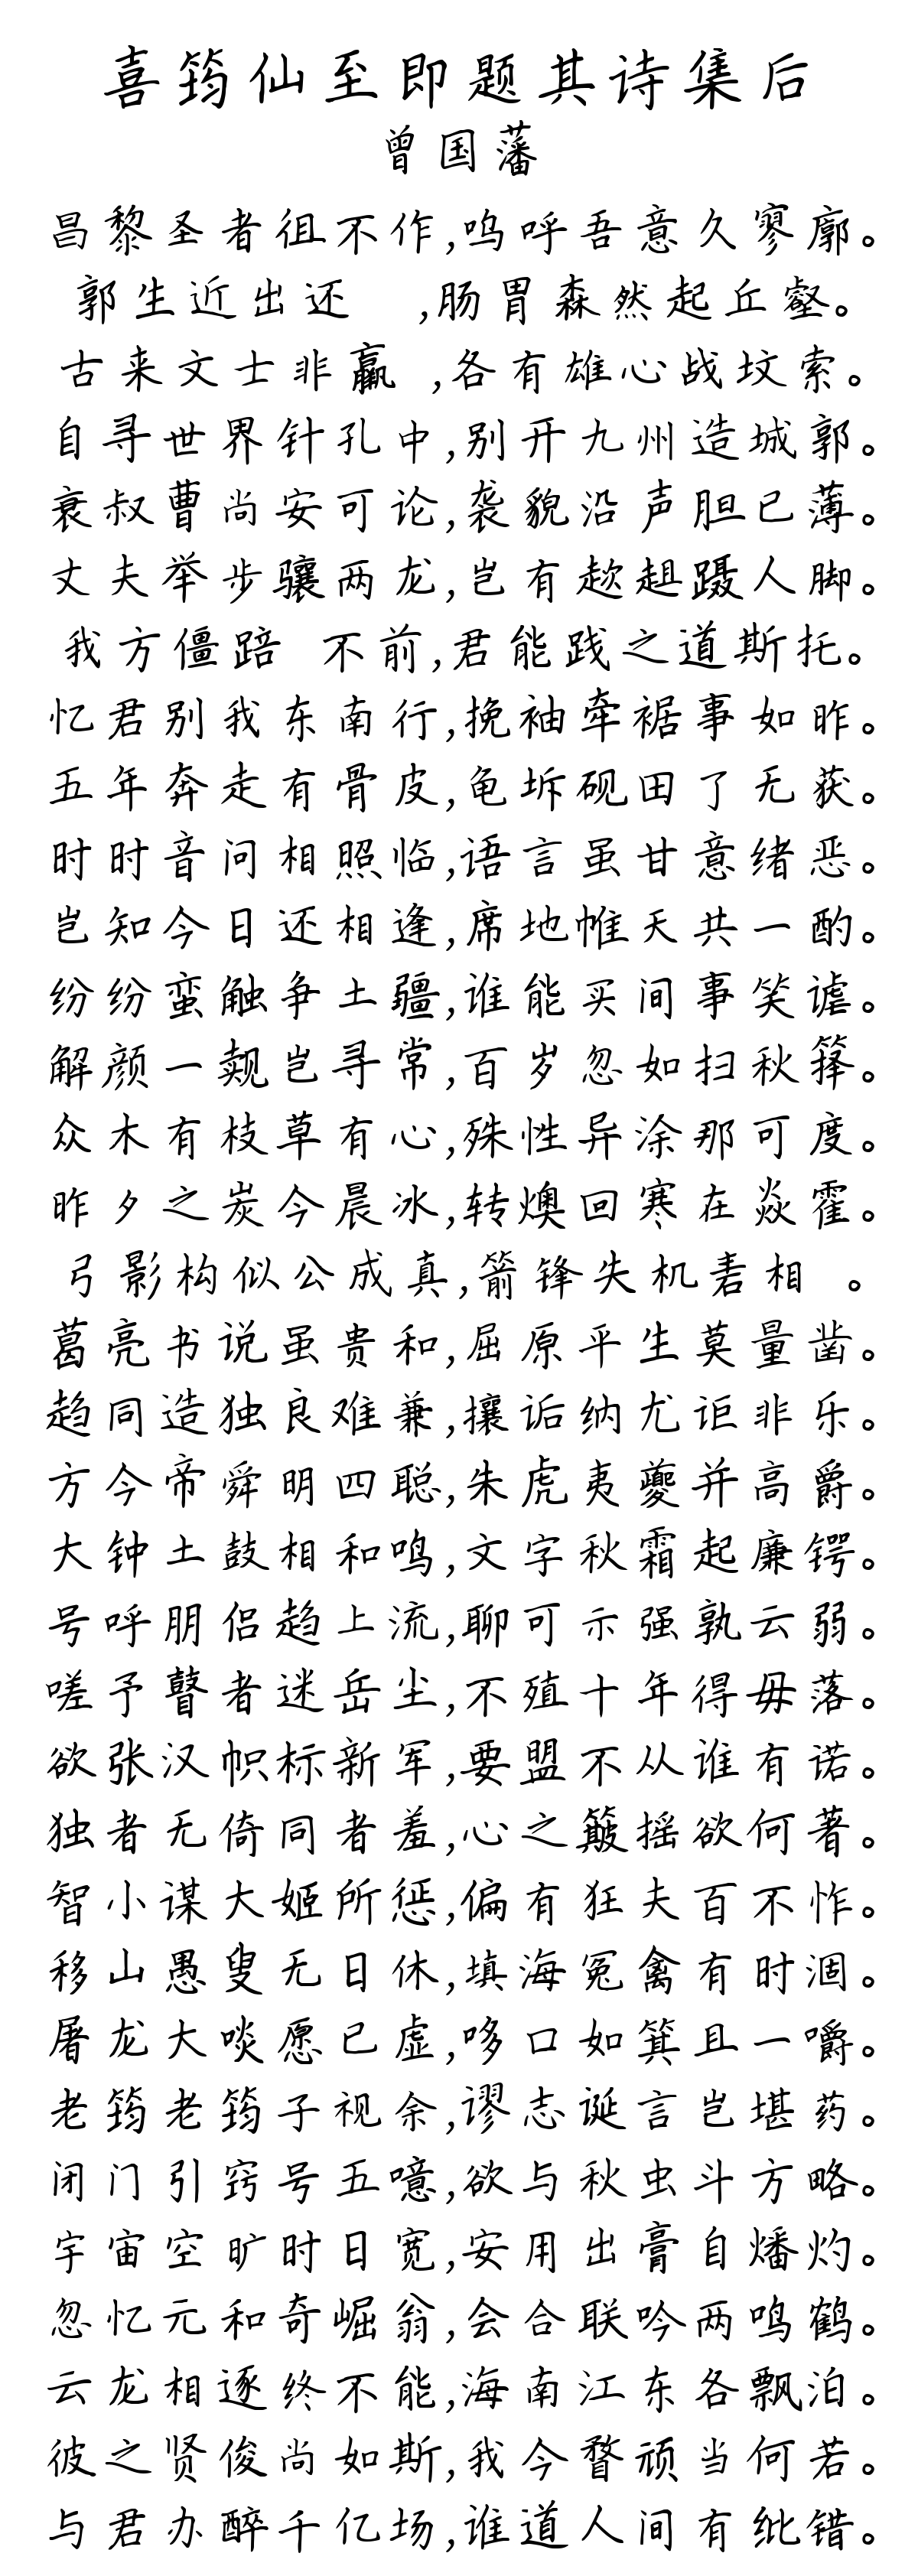 喜筠仙至即题其诗集后
曾国藩
昌黎圣者徂不作,呜呼吾意久寥廓。
郭生近出还 ,肠胃森然起丘壑。
古来文士非赢 ,各有雄心战坟索。
自寻世界针孔中,别开九州造城郭。
衰叔曹尚安可论,袭貌沿声胆已薄。
丈夫举步骧两龙,岂有趑趄蹑人脚。
我方僵踣 不前,君能践之道斯托。
忆君别我东南行,挽袖牵裾事如昨。
五年奔走有骨皮,龟坼砚田了无获。
时时音问相照临,语言虽甘意绪恶。
岂知今日还相逢,席地帷天共一酌。
纷纷蛮触争土疆,谁能买间事笑谑。
解颜一觌岂寻常,百岁忽如扫秋箨。
众木有枝草有心,殊性异涂那可度。
昨夕之炭今晨冰,转燠回寒在焱霍。
弓影构似公成真,箭锋失机砉相 。
葛亮书说虽贵和,屈原平生莫量凿。
趋同造独良难兼,攘诟纳尤讵非乐。
方今帝舜明四聪,朱虎夷夔并高爵。
大钟土鼓相和鸣,文字秋霜起廉锷。
号呼朋侣趋上流,聊可示强孰云弱。
嗟予瞽者迷岳尘,不殖十年得毋落。
欲张汉帜标新军,要盟不从谁有诺。
独者无倚同者羞,心之簸摇欲何著。
智小谋大姬所惩,偏有狂夫百不怍。
移山愚叟无日休,填海冤禽有时涸。
屠龙大啖愿已虚,哆口如箕且一嚼。
老筠老筠子视余,谬志诞言岂堪药。
闭门引窍号五噫,欲与秋虫斗方略。
宇宙空旷时日宽,安用出膏自燔灼。
忽忆元和奇崛翁,会合联吟两鸣鹤。
云龙相逐终不能,海南江东各飘泊。
彼之贤俊尚如斯,我今瞀顽当何若。
与君办醉千亿场,谁道人间有纰错。